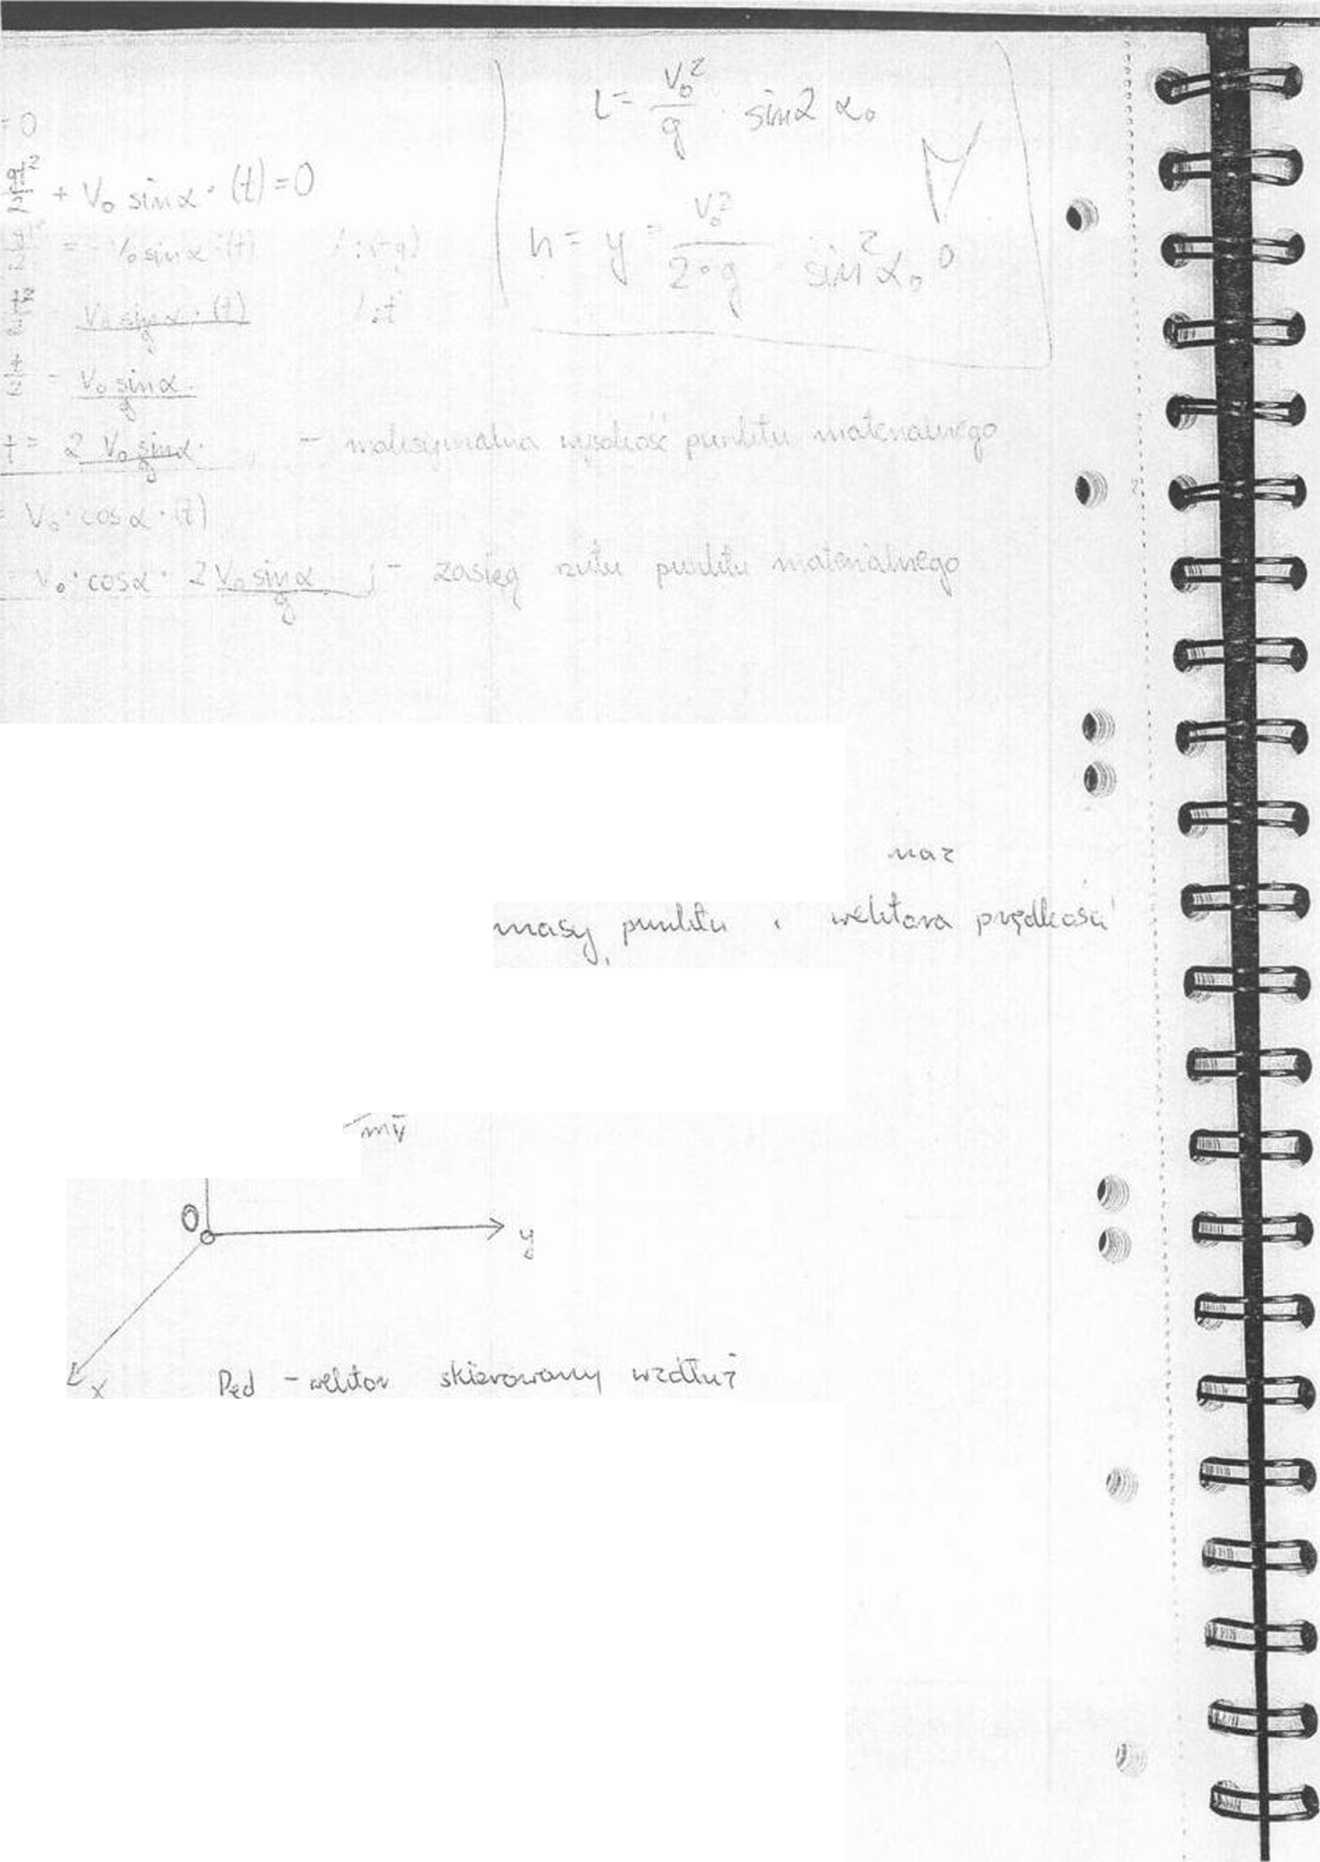 = 0
+ V₀ sinα · (t) = 0
= - V₀ sinα · (t) / :(-g)
V₀ sinα · (t) / g / :t
V₀ sinα / g
t = 2 V₀ sinα / g - maksymalna wysokość punktu materialnego
= V₀ · cosα · (t)
= V₀ · cosα · 2 V₀ sinα / g ; - zasięg rzutu punktu materialnego
L = V₀² / g · sin2 α₀
h = y = V₀² / 2·g sin² α₀
masy punktu i wektora prędkości
mv̄
O
y
x
Pęd - wektor skierowany wzdłuż